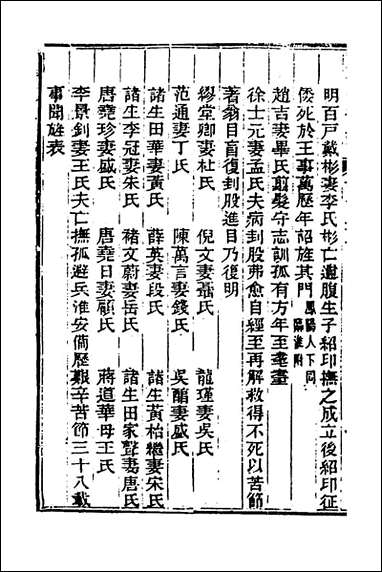 明百戶戴彬妻李氏彬亡遺腹生子紹印撫之成立後紹印征
倭死於王事萬歷年詔旌其門鳳陽人下同臨淮附
趙吉妻畢氏翦髮守志訓孤有方年至耄耋
徐士元妻孟氏夫病刲股弗愈自經至再解救得不死以苦節
著翁目盲復刲股進目乃復明
繆堂卿妻杜氏　倪文妻聶氏　龍瑾妻吳氏
范通妻丁氏　陳萬言妻錢氏　吳䤃妻盛氏
諸生田華妻黃氏　薛英妻段氏　諸生黃枱繼妻宋氏
諸生李冠妻朱氏　褚文蔚妻岳氏　諸生田家聲妻唐氏
唐堯珍妻戚氏　唐堯日妻顧氏　蔣道華母王氏
李景釗妻王氏夫亡撫孤避兵淮安備歷艱辛苦節三十八載
事聞旌表